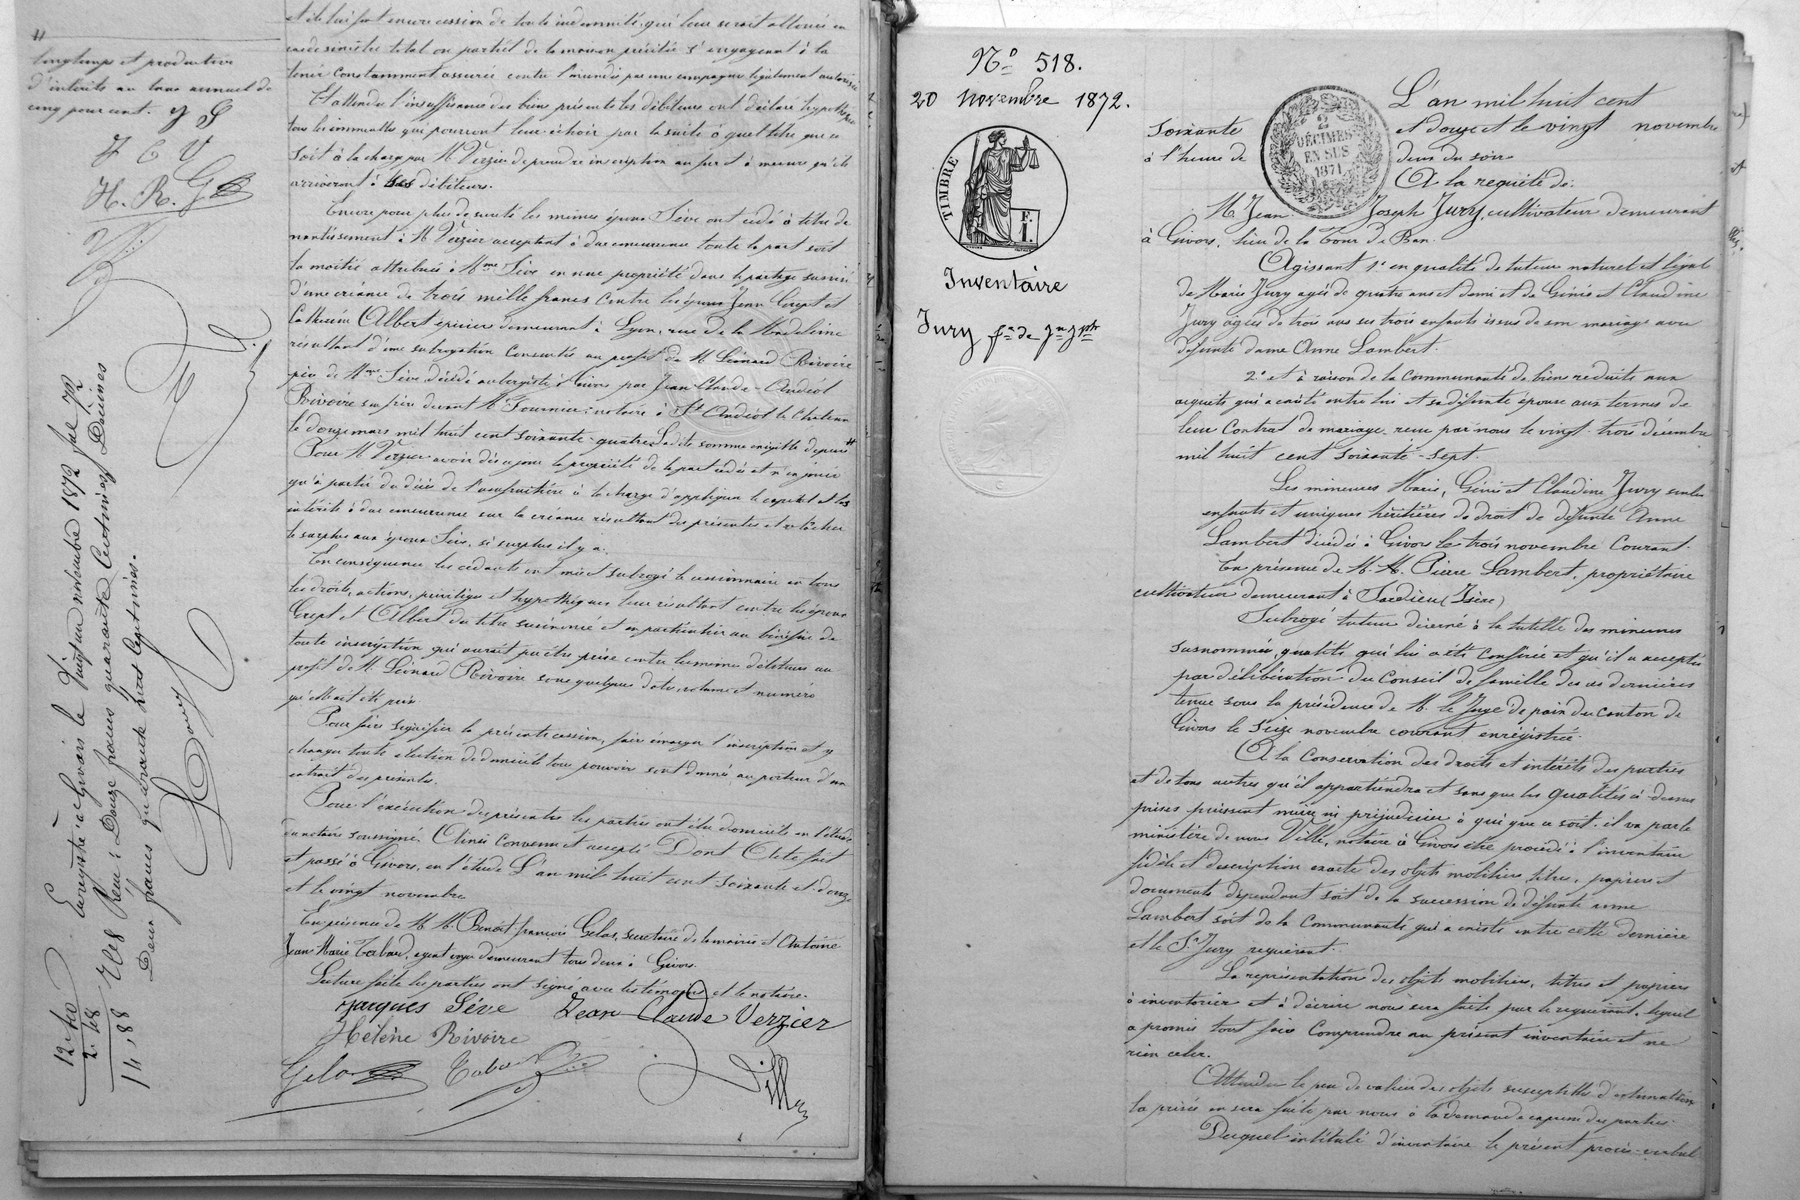 longtemps et productive
d'intérêts au taux annuel de
cinq pour cent.
J C V
H. R. G
Enregistré à Givors le Vingt un novembre 1872
Reçu : Douze francs quarante Centimes Décimes
Deux francs quarante huit Centimes.
12,40
2,48
14,88
et de lui faire encore cession de toute indemnité qui leur serait allouée en
cas de sinistre total ou partiel de la maison précitée s'engageant à la
tenir constamment assurée contre l'incendie par une compagnie légalement autorisée
Et attendu l'insuffisance des biens présents les débiteurs ont déclaré hypothéquer
tous les immeubles qui pourront leur échoir par la suite à quel titre que ce
soit à la charge par M. Verzier de prendre inscription au fur et à mesure qu'ils
arriveront à ses débiteurs.
Encore pour plus de sureté les mêmes époux Sève ont cédé à titre de
nantissement à M. Verzier acceptant à due concurrence toute la part soit
la moitié attribuée à Mme Sève en nue propriété dans le partage susvisé
d'une créance de trois mille francs contre les époux Jean Crept et
Catherine Albert épiciers demeurant à Lyon, rue de la Madeleine
résultant d'une subrogation consentie au profit de M. Léonard Rivoire
père de Mme Sève décédé aubergiste à Givors par Jean Claude-Andéol
Rivoire son frère devant Me Fournier notaire à St Andéol le Château
le douze mars mil huit cent soixante-quatre. Ladite somme exigible depuis
Pour M. Verzier avoir dès ce jour la propriété de la part cédée et n'en jouir
qu'à partir du décès de l'usufruitière à la charge d'appliquer le capital et les
intérêts à due concurrence sur la créance résultant des présentes et relâcher
le surplus aux époux Sève, si surplus il y a.
En conséquence les cédants ont mis et subrogé le cessionnaire en tous
les droits, actions, privilèges et hypothèques leur résultant contre les époux
Crept et Albert du titre susénoncé et en particulier au bénéfice de
toute inscription qui aurait pu être prise contre les mêmes débiteurs au
profit de M. Léonard Rivoire sous quelques date, volume et numéro
qu'elle ait été prise
Pour faire signifier la présente cession, faire émarger l'inscription et y
changer toute élection de domicile tous pouvoirs sont donnés au porteur d'un
extrait des présentes.
Pour l'exécution des présentes les parties ont élu domicile en l'étude
du notaire soussigné. Ainsi convenu et accepté Dont Acte fait
et passé à Givors, en l'étude L'an mil huit cent soixante et douze
et le vingt novembre
En présence de M. M. Benoit françois Gelas, secrétaire de la mairie et Antoine
Jean Marie Tabard, agent voyer demeurant tous deux à Givors.
Lecture faite les parties ont signé avec les témoins et le notaire.
Jacques Sève Jean Claude Verzier
Hélène Rivoire
Gelas Tabard Ville
No 518.
20 novembre 1872.
TIMBRE
F.
I.
Inventaire
Jury fe de Jn Jph
2
DÉCIMES
EN SUS
1871
L'an mil huit cent
soixante et douze et le vingt novembre
à l'heure de deux du soir
A la requête de
M. Jean Joseph Jury, cultivateur demeurant
à Givors, lieu de la Tour de Ban.
Agissant 1o en qualité de tuteur naturel et légal
de Marie Jury agée de quatre ans et demi et de Génie et Claudine
Jury agées de trois ans ses trois enfants issus de son mariage avec
défunte dame Anne Lambert
2o et à raison de la Communauté de biens réduite aux
acquets qui a existé entre lui et sa défunte épouse aux termes de
leur Contrat de mariage reçu par nous le vingt-trois décembre
mil huit cent soixante-sept.
Les mineures Marie, Génie et Claudine Jury seules
enfants et uniques héritières de droit de défunte Anne
Lambert décédée à Givors le trois novembre Courant.
En présence de M. M. Pierre Lambert, propriétaire
cultivateur demeurant à Tardieu (Isère)
Subrogé tuteur décerné à la tutelle des mineures
susnommées, qualité qui lui a été conférée et qu'il a acceptée
par délibération du Conseil de famille de ces dernières
tenue sous la présidence de M. le Juge de paix du canton de
Givors le seize novembre courant enregistrée.
A la Conservation des droits et intérêts des parties
et de tous autres qu'il appartiendra et sans que les qualités ci-dessus
prises puissent nuire ni préjudicier à qui que ce soit. il va par le
ministère de nous Ville, notaire à Givors être procédé à l'inventaire
fidèle et description exacte des objets mobiliers, titres, papiers et
documents dépendant soit de la succession de défunte Anne
Lambert soit de la Communauté qui a existé entre cette dernière
et le Sr Jury requérant.
La représentation des objets mobiliers, titres et papiers
à inventorier et à décrire nous sera faite par le requérant, lequel
a promis tout faire comprendre au présent inventaire et ne
rien celer.
Attendu le peu de valeur des objets susceptibles d'estimation
la prisée en sera faite par nous à la demande expresse des parties.
Duquel intitulé d'inventaire le présent procès-verbal